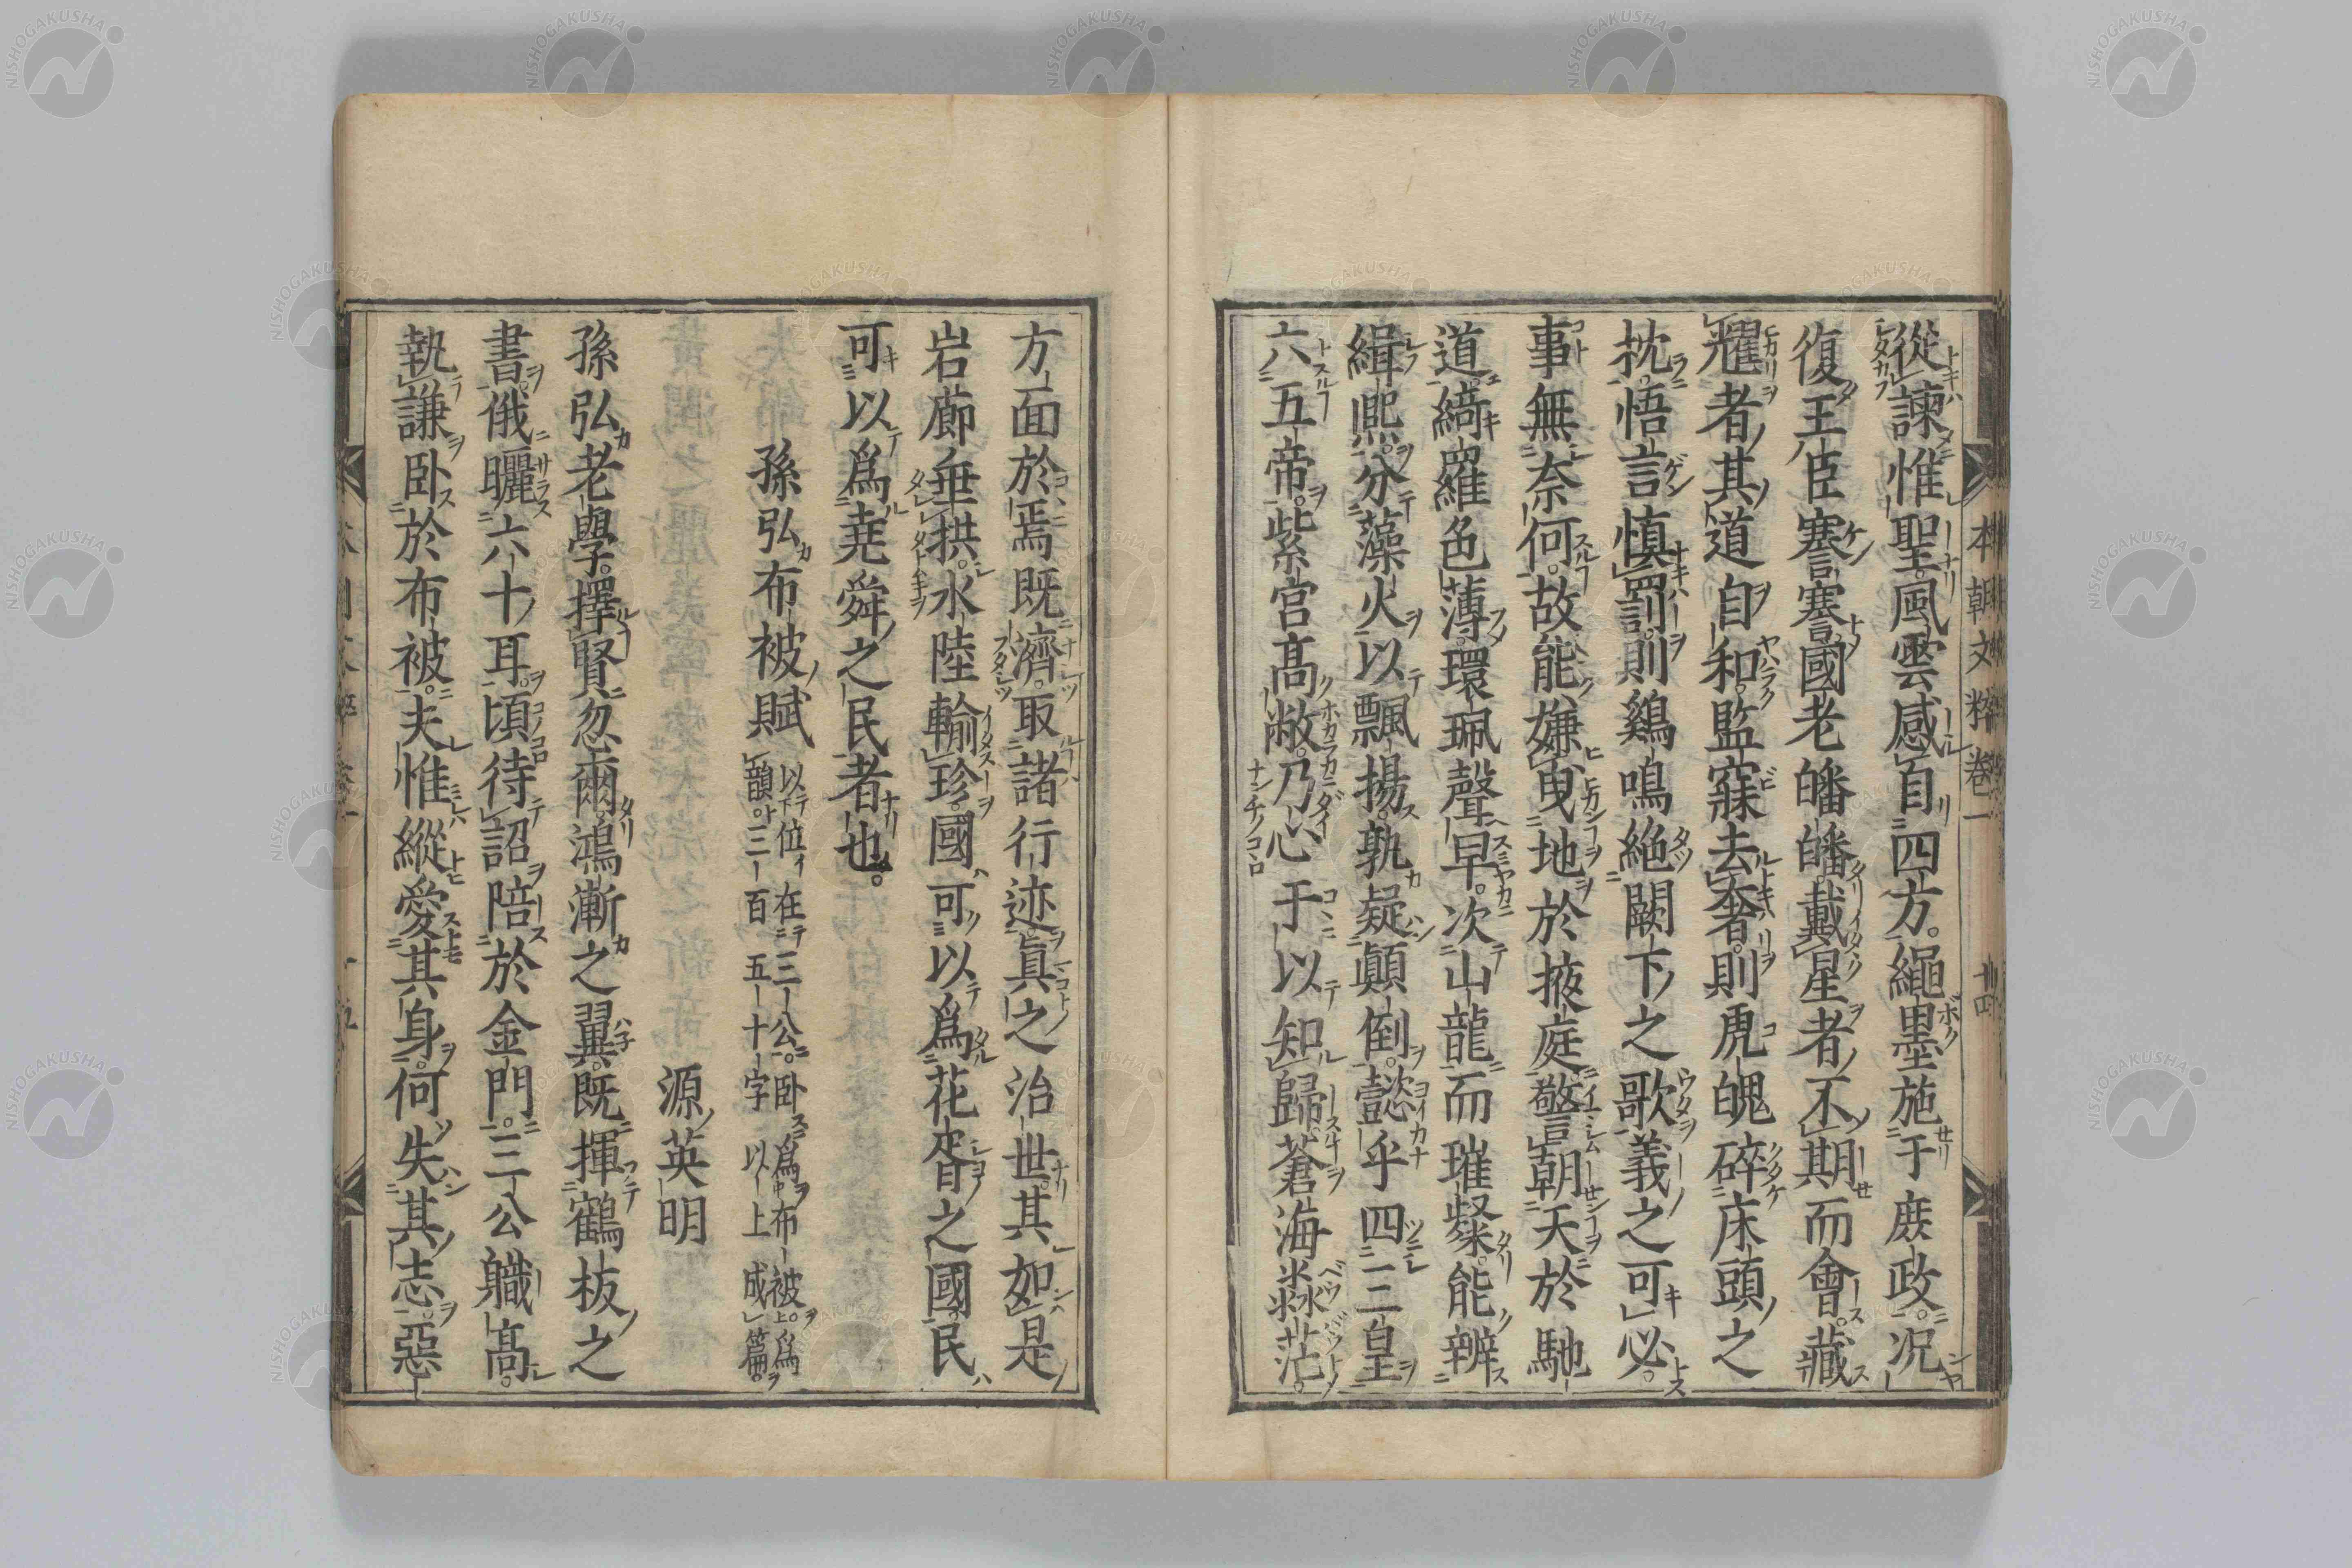 從諫惟聖風雲感自四方。繩墨施于庶政。況
復王臣謇謇。國老皤皤。戴星者不期而會。藏
耀者其道自和。監寐去奢。則虎魄碎床頭之
枕。悟言慎罰。則鷄鳴絶闕下之歌。義之可必。
事無奈何。故能嫌曳地於掖庭。警朝天於馳
道。綺羅色薄。環珮聲早。次山龍而璀粲。能辨
緝熙。分藻火以飄揚。孰疑顛倒。懿乎四三皇
六五帝。紫宮高敞。乃心于以知歸。蒼海淼茫。
本朝文粹卷一
廿四
方面於焉既濟。取諸行迹。眞之治世。其如是
岩廊垂拱。水陸輸珍。國可以爲花胥之國。民
可以爲堯舜之民者也。
孫弘布被賦
以下位在三公。卧爲布被。爲
韻。三百五十字以上成篇。
源英明
孫弘老學。擇賢忽爾。鴻漸之翼。既揮鶴板之
書。俄曬六十耳。頃待詔陪於金門。三公職高。
執謙卧於布被。夫惟縱愛其身。何失其志。惡